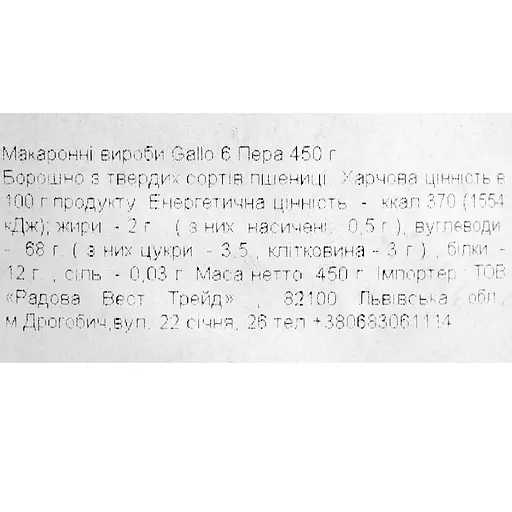 Макаронні вироби Gallo 6 Пера 450 г
Борошно з твердих сортів пшениці. Харчова цінність в
100 г продукту. Енергетична цінність - ккал 370 (1554
кДж); жири - 2 г. ( з них насичені: 0,5 г ), вуглеводи
- 68 г. ( з них цукри - 3,5 , клітковина - 3 г ) , білки -
12 г. , сіль - 0,03 г. Маса нетто 450 г. Імпортер: ТОВ
«Радова Вест Трейд» , 82100 Львівська обл.,
м.Дрогобич,вул. 22 січня, 26 тел.+380683061114